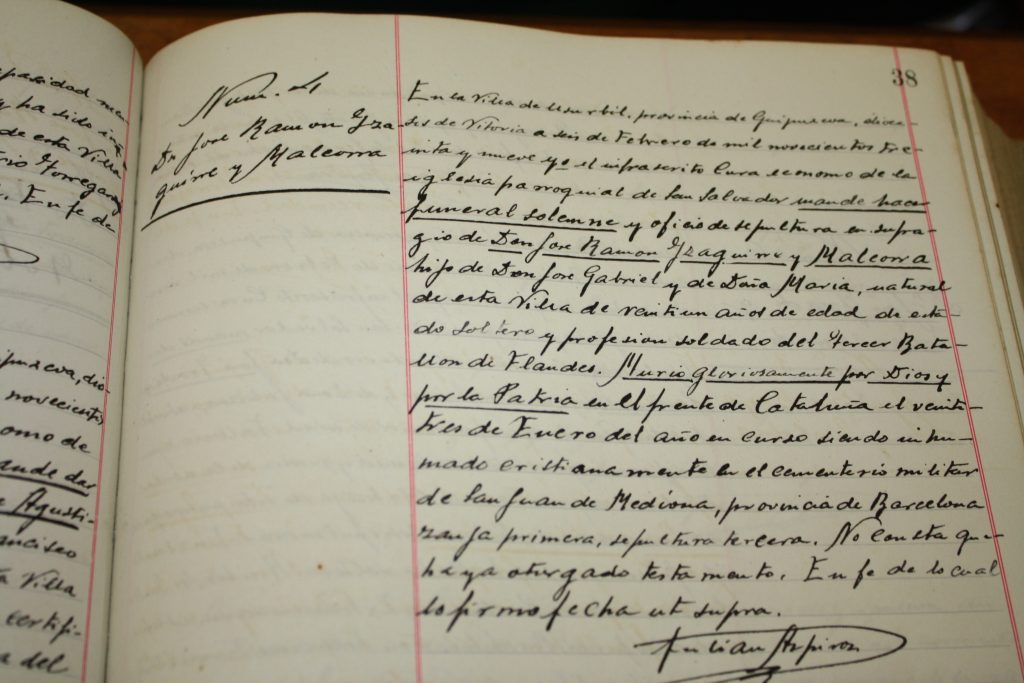 pasidad
y ha sido
de esta Villa
En fe de
novecientos
omo de
ande dar
Agusti-
ancisco
Villa
certifi-
a del
38
Num. 4
Dn Jose Ramon Yza-
guirre y Maleorra
En la Villa de Usurbil, provincia de Guipuzcoa, dioce-
sis de Vitoria a seis de Febrero de mil novecientos tre-
inta y nueve yo el infrascrito Cura economo de la
iglesia parroquial de San Salvador mande hacer
funeral solemne y oficio de sepultura en sufra-
gio de Don Jose Ramon Yzaguirre y Maleorra
hijo de Don Jose Gabriel y de Doña Maria, natural
de esta Villa de veintiun años de edad de esta-
do soltero y profesion soldado del Tercer Bata-
llon de Flandes. Murio Gloriosamente por Dios y
por la Patria en el frente de Cataluña el veinti-
tres de Enero del año en curso siendo inhu-
mado cristianamente en el cementerio militar
de San Juan de Mediona, provincia de Barcelona
zanja primera, sepultura tercera. No consta que
haya otorgado testamento. En fe de lo cual
lo firmo fecha ut supra.
Julian Azpiroz